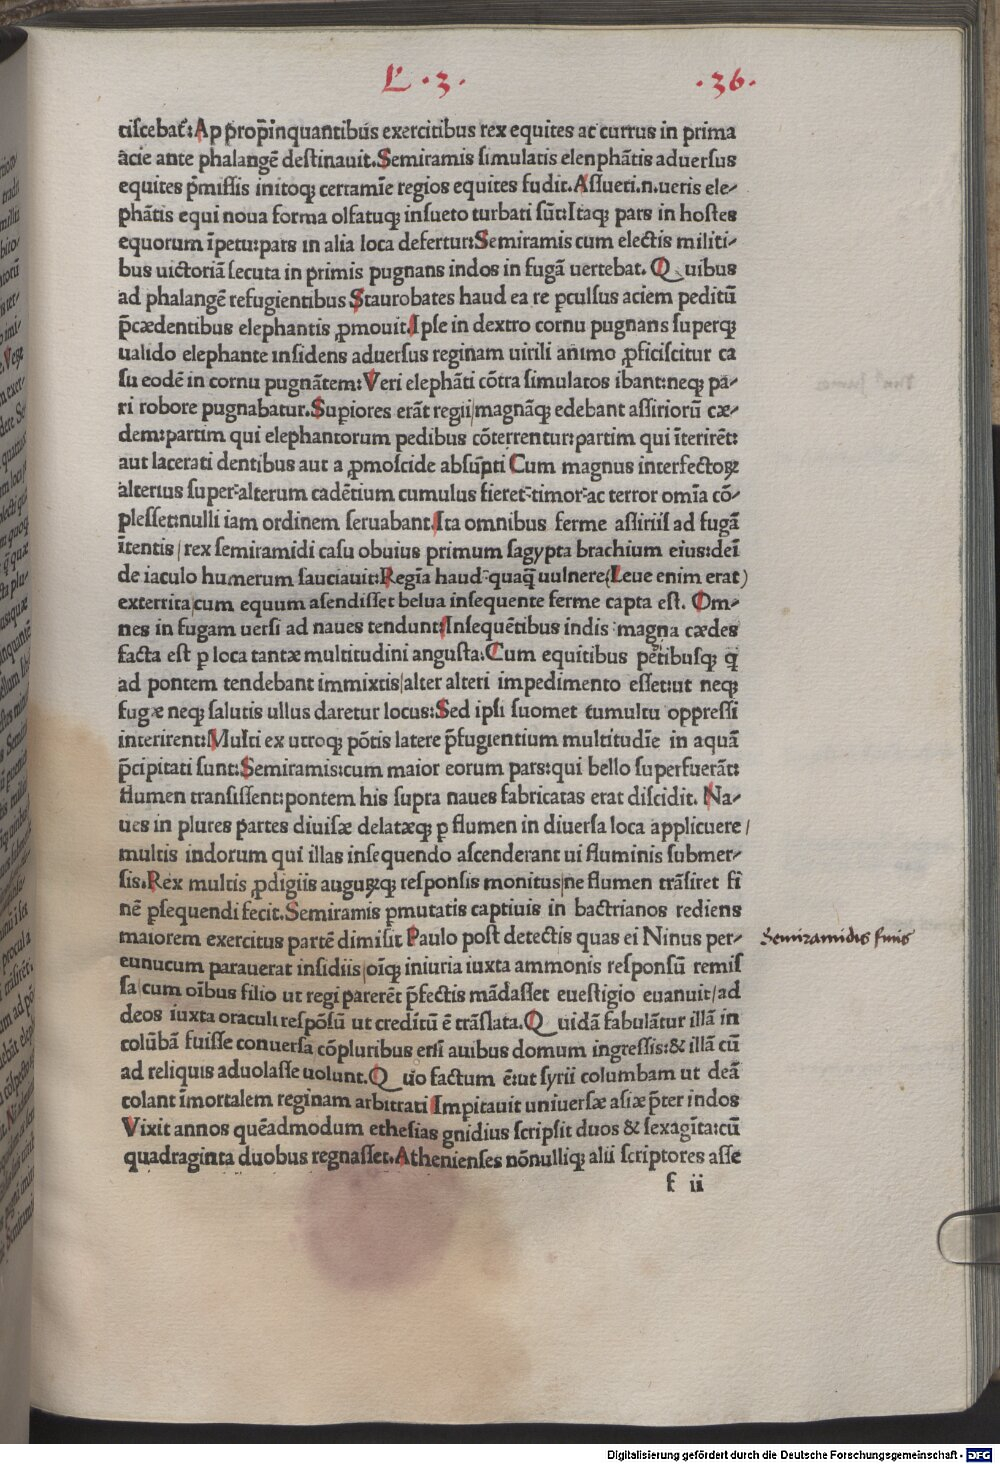 L . 3 .
. 36 .
tiscebat̄:Ap p̄rop̄inquantibus exercitibus rex equites ac currus in prima
acie ante phalangē destinauit.Semiramis simulatis elenphātis aduersus
equites p̄missis initoq; certamīe regios equites fudit.Assueti.n.ueris ele⸗
phātis equi noua forma olfatuq; insueto turbati sūt:Itaq; pars in hostes
equorum īpetu:pars in alia loca defertur:Semiramis cum electis militi⸗
bus uictoriā secuta in primis pugnans indos in fugā uertebat. Quibus
ad phalangē refugientibus Staurobates haud ea re ꝑculsus aciem peditū
p̄cædentibus elephantis ꝓmouit.Ipse in dextro cornu pugnans superq;
ualido elephante insidens aduersus reginam uirili animo ꝓficiscitur ca
su eodē in cornu pugnātem:Veri elephāti cōtra simulatos ibant:neq; pa⸗
ri robore pugnabatur.Supiores erāt regii/magnāq; edebant assiriorū cæ⸗
dem:partim qui elephantorum pedibus cōterrentur:partim qui īterirēt:
aut lacerati dentibus aut a ꝓmoscide absūpti Cum magnus interfectoꝝ
alterius super:alterum cadētium cumulus fieret:timor:ac terror omīa cō⸗
plesset:nulli iam ordinem seruabant.Ita omnibus ferme assiriis ad fugā
ītentis/rex semiramidi casu obuius primum sagypta brachium eius:deī
de iaculo humerum sauciauit:Regīa haud:quaq̄ uulnere(Leue enim erat)
exterrita/cum equum asendisset belua insequente ferme capta est. Om⸗
nes in fugam uersi ad naues tendunt:Insequētibus indis:magna cædes
facta est ꝑ loca tantæ multitudini angusta:Cum equitibus pētibusq; q̄
ad pontem tendebant immixtis/alter alteri impedimento esset:ut neq;
fugæ neq; salutis ullus daretur locus:Sed ipsi suomet tumultu oppressi
interirent:Multi ex utroq; pōtis latere p̄fugientium multitudīe in aquā
p̄cipitati sunt:Semiramis:cum maior eorum pars:qui bello superfuerāt:
flumen transissent:pontem his supra naues fabricatas erat discidit. Na⸗
ues in plures partes diuisæ delatæq; ꝑ flumen in diuersa loca applicuere/
multis indorum qui illas insequendo ascenderant ui fluminis submer⸗
sis.Rex multis ꝓdigiis auguꝝq; responsis monitus/ne flumen trāsiret fi
nē ꝑsequendi fecit.Semiramis ꝑmutatis captiuis in bactrianos rediens
maiorem exercitus partē dimisit Paulo post detectis quas ei Ninus per⸗
Semiramidis finis
eunucum parauerat insidiis/oīq; iniuria iuxta ammonis responsū remis
sa/cum oībus filio ut regi parerēt p̄fectis mādasset euestigio euanuit/ad
deos iuxta oraculi respōsū ut creditū ē trāslata.Quidā fabulātur illā in
colūbā fuisse conuersa cōpluribus ersi auibus domum ingressis:& illā cū
ad reliquis aduolasse uolunt.Quo factum ē:ut syrii columbam ut deā
colant īmortalem reginam arbitrati Impitauit uniuersæ asiæ p̄ter indos
Vixit annos quēadmodum ethesias gnidius scripsit duos & sexagīta:cū
quadraginta duobus regnasset.Athenienses nōnulliq; alii scriptores asse
f ii
Digitalisierung gefördert durch die Deutsche Forschungsgemeinschaft - DFG